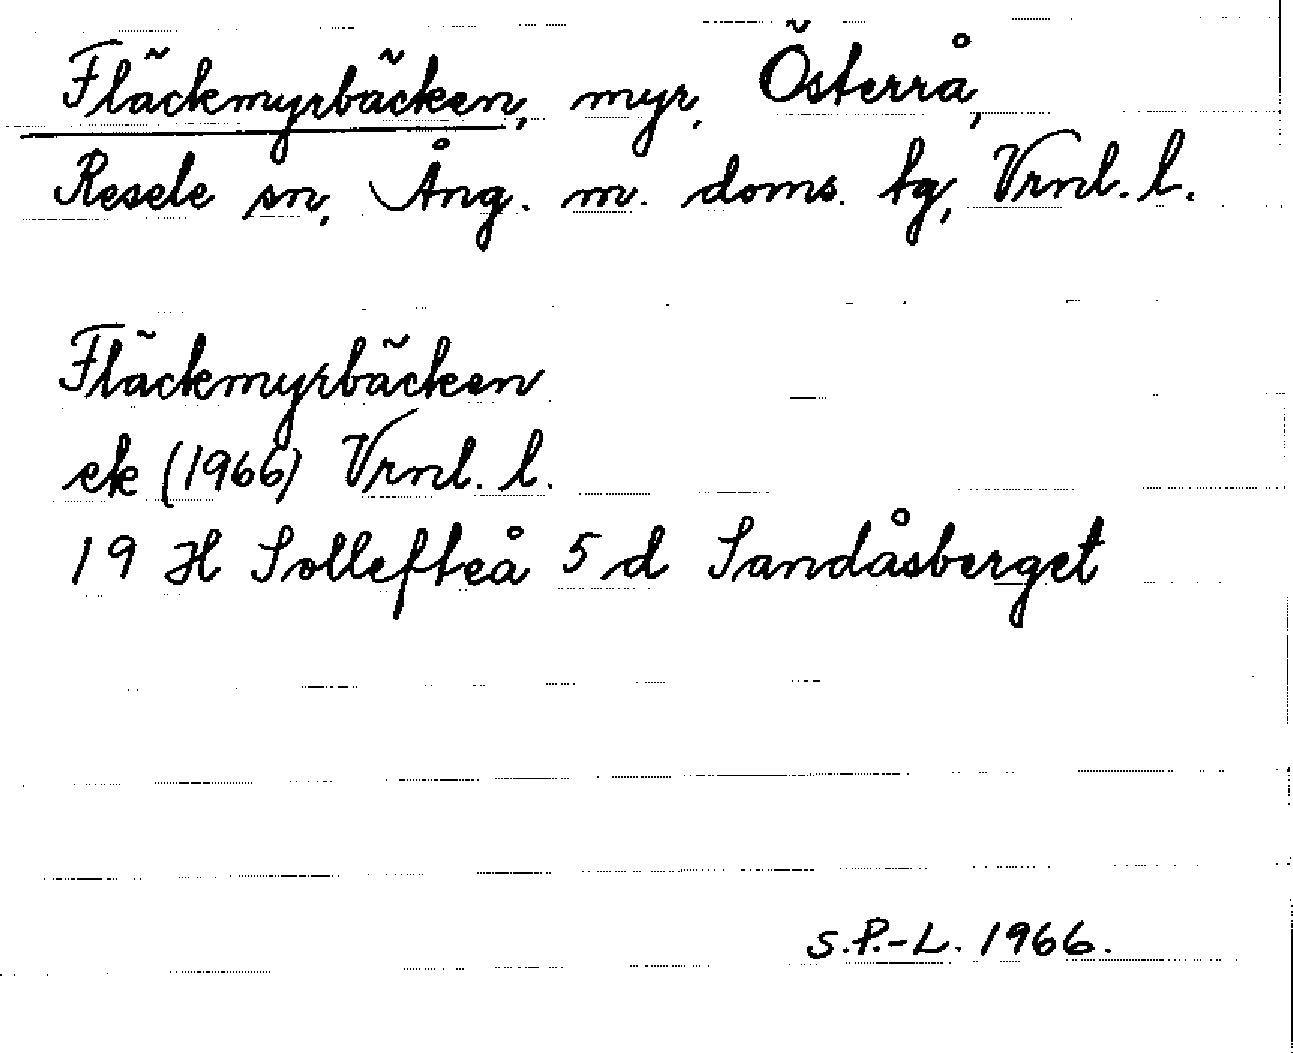 Fläckmyrbäcken, myr, Österrå,
Resele sn, Ång. m. doms. tg, Vrnl. l.
Fläckmyrbäcken
ek (1966) Vrnl. l.
19 H Sollefteå 5 d Sandåsberget
S.P.-L. 1966.